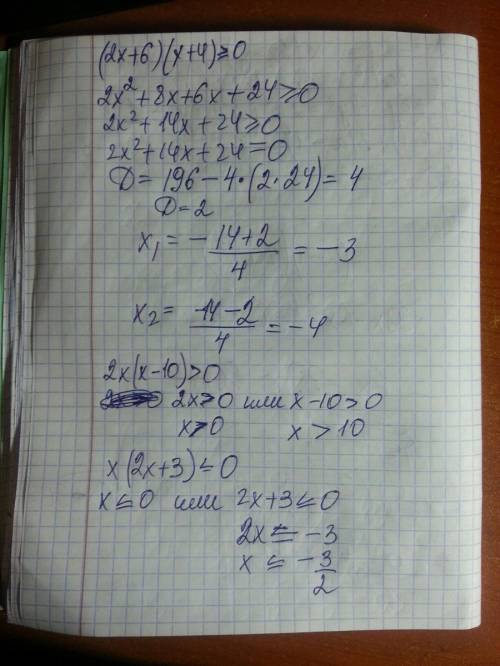 (2x+6)(x+4)≥0
2x²+8x+6x+24≥0
2x²+14x+24≥0
2x²+14x+24=0
D=196-4·(2·24)=4
D=2
x₁=-14+2/4=-3
x₂=-14-2/4=-4
2x(x-10)>0
2x>0 или x-10>0
x>0 x>10
x(2x+3)≤0
x≤0 или 2x+3≤0
2x≤-3
x≤-3/2